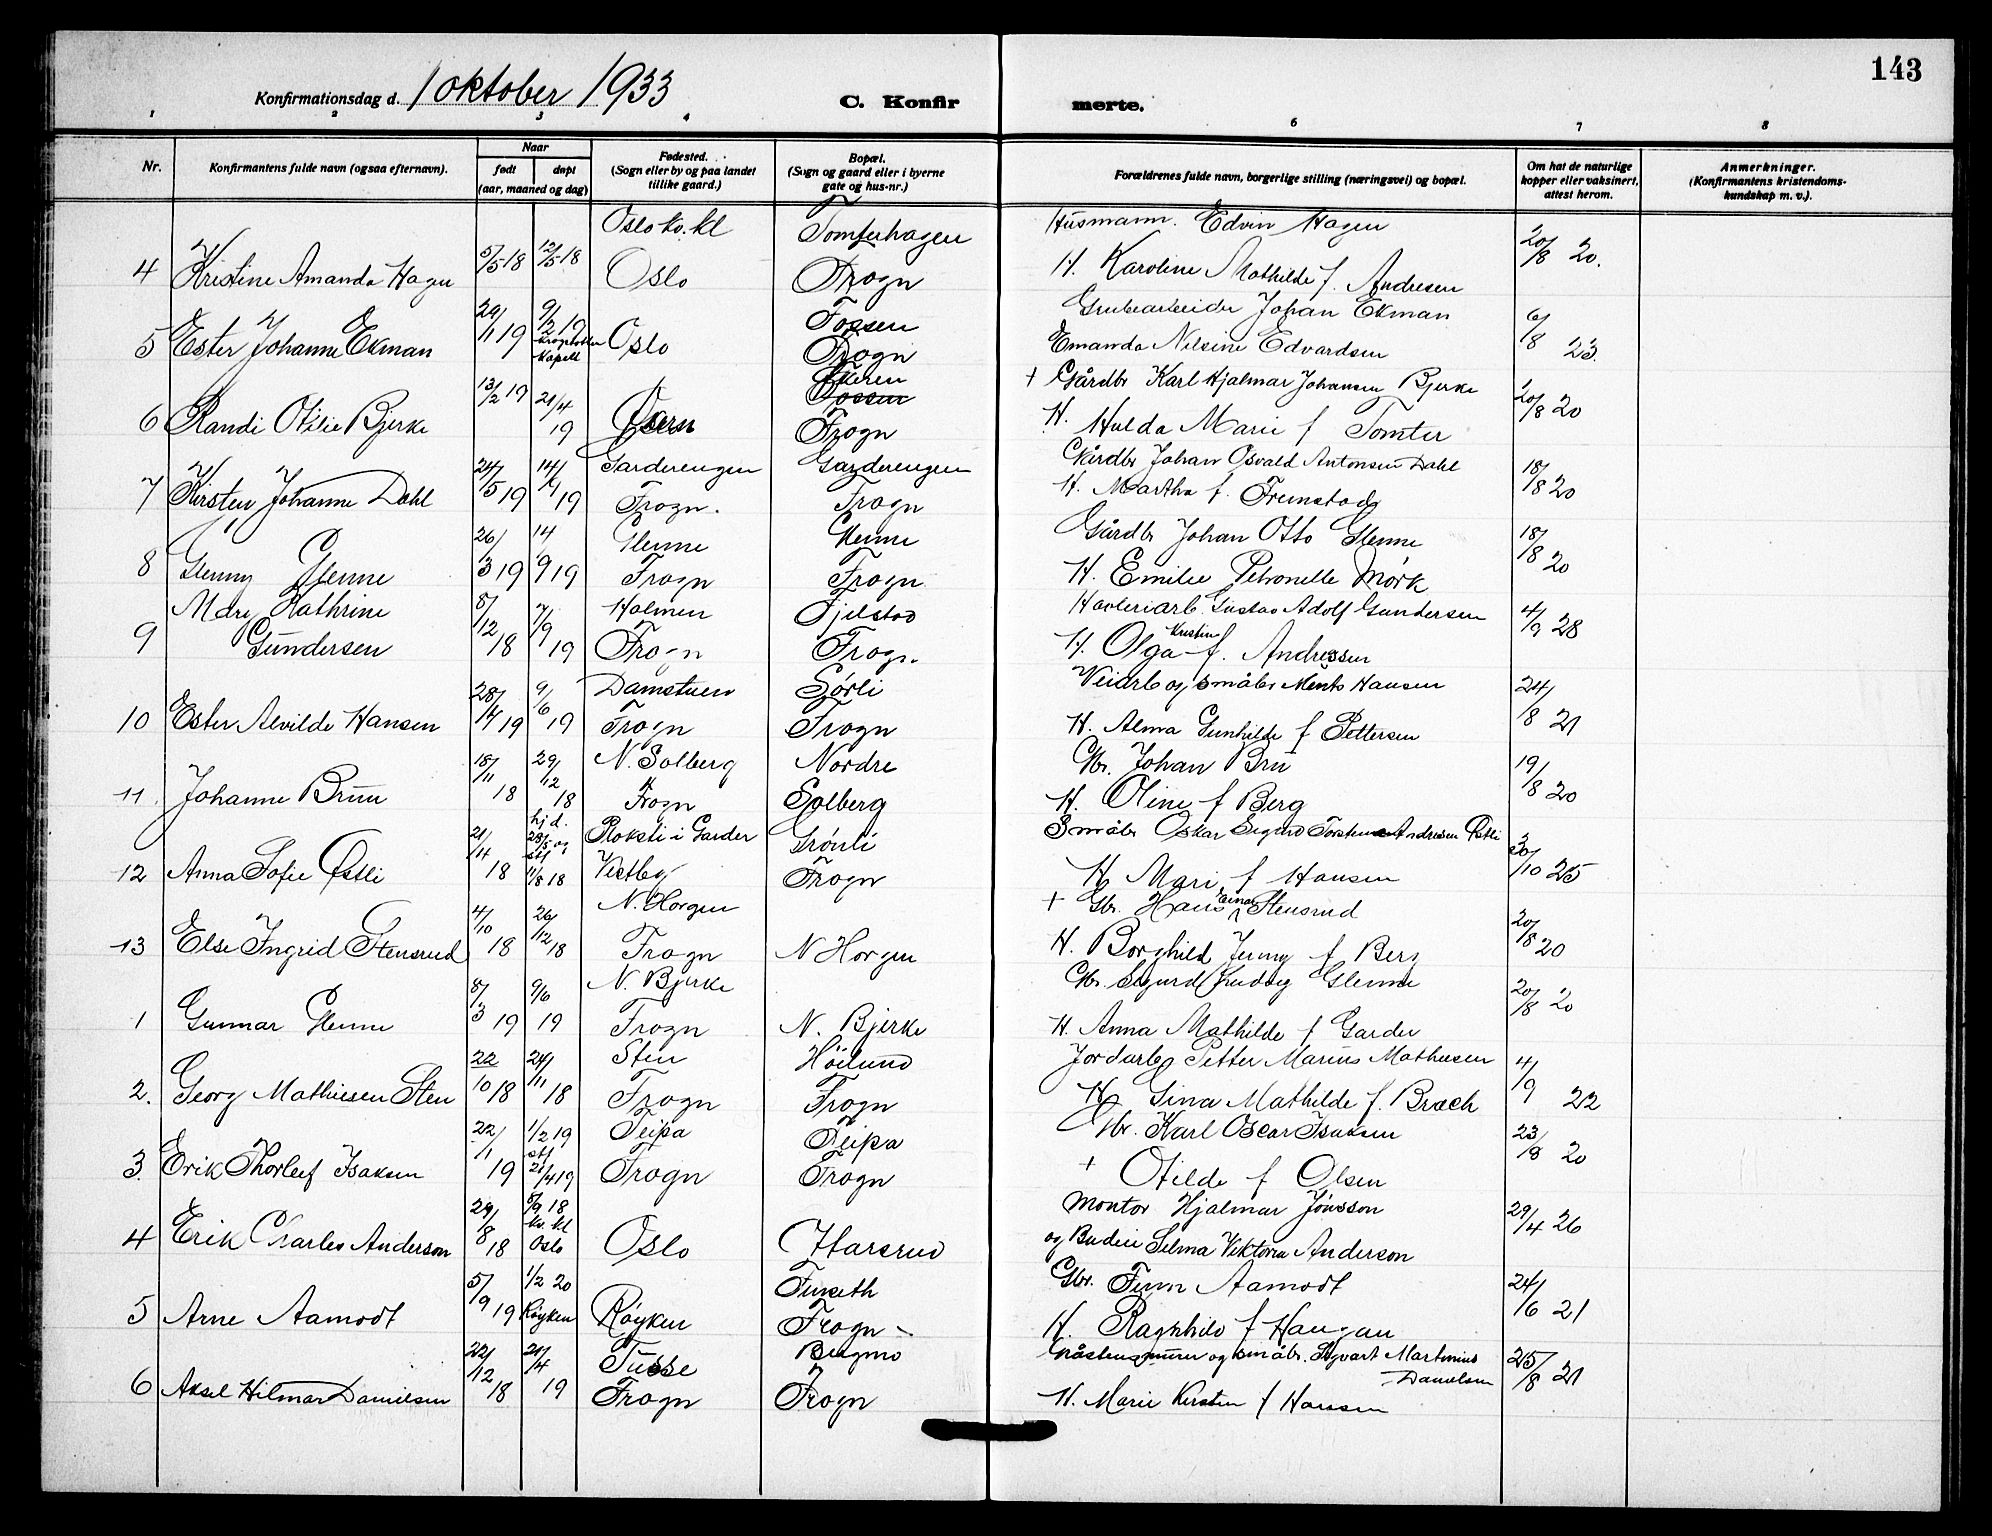 143
Konfirmationsdag d. 1 oktober 1933 C. Konfirmerte.
1 2 3 4 6 7 8
Nr. Konfirmantens fulde navn (ogsaa efternavn). Naar født døpt (aar, maaned og dag) Fødested. (Sogn eller by og paa landet tillike gaard.) Bopæl. (Sogn og gaard eller i byerne gate og hus-nr.) Forældrenes fulde navn, borgerlige stilling (næringsvei) og bopæl. Om hat de naturlige kopper eller vaksinert, attest herom. Anmerkninger. (Konfirmantens kristendomskundskap m. v.).
Oslo kv. kl Tomterhagen Husmann. Edvin Hagen
4 Kristine Amanda Hagen 5/5-18 12/5-18 Oslo Frogn H. Karoline Mathilde f. Andresen 20/8 20.
Fossen Grubearbeider Johan Ekman
5 Ester Johanne Ekman 29/1 19 9/2 19 Kapell Oslo Frogn Emanda Nilsine Edvardsen 6/8 23.
Fossen + Gårdbr Karl Hjalmar Johansen Bjerke
6 Randi Otilie Bjerke 13/2 19 21/4 19 Frogn H. Hulda Marie f Tomter 20/8 20
Garderengen Garderengen Gårdbr Johan Osvald Antonsen Dahl
7 Kirsten Johanne Dahl 24/5 19 14/ 19 Frogn. Frogn H. Martha f. Fremstad 18/8 20
Glenne Glenne Gårdbr Johan Otto Glenne
8 Glenny Glenne 26/3 19 14/9 19 Frogn Frogn H. Emilie Petronelle Mörk 18/8 20
Mary Kathrine Holmen Fjelstad Gustav Adolf Gundersen
9 Gundersen 8/12 18 7/9 19 Frogn Frogn. H. Olga Kristine f. Andressen 4/9 28
Damstuen Sørli Veiarb og småbr Hansen
10 Ester Alvilde Hansen 28/4 19 9/6 19 Frogn Frogn H. Alma Gunhilde f Pettersen 24/8 21
N. Solberg Nordre Gbr. Johan Bru
11. Johanne Bruu 18/11 18 29/12 18 Frogn Solberg H. Oline f Berg 19/8 20
hjd. i Garder Grönli Småbr Oskar Sigurd Andresen Østli
12 Anna Sofie Østli 21/4 18 28/5 og stf 11/8 18 Vestby Frogn H Mari f Hansen 30/10 25
N. Horgen + Gbr. Hans Einar Stensrud
13 Else Ingrid Stensrud 4/10 18 26/12 18 Frogn N Horgen H. Borghild Jenny f Berg 20/8 20
N. Bjerke Gbr. Sigurd Ludvig Glenne
1 Gunnar Glenne 8/3 19 9/6 19 Frogn N. Bjerke H. Anna Mathilde f Garder 20/8 20
Sten Höilund Jordarb Petter Marius Mathiesen
2. Georg Mathiesen Sten 22/10 18 24/11 18 Frogn Frogn H Gina Mathilde f. Braek 4/9 22
Teipa Teipa Gbr. Karl Oscar Isaksen
3. Erik Thorleif Isaksen 22/1 19 1/2 19 stf 21/4 19 Frogn Frogn + Otilde f Olsen 23/8 20
Montør Hjalmar Jönsson
4 Erik Charles Anderson 29/8 18 5/9 18 kv. kl Oslo Oslo Harsrud og Budeie Selma Viktoria Anderson 29/4 26
Fuseth Gbr. Finn Aamodt
5 Arne Aamodt 5/9 19 1/2 20 Røyken Røyken Frogn H. Ragnhild f Haugan 24/6 21
Tusse Bugmo Gråstensmurer og småbr. Sigvart Martinius Danielsen
6 Aksel Hilmar Danielsen 22/12 18 21/4 19 Frogn Frogn H. Marie Kirsten f Hansen 25/8 21